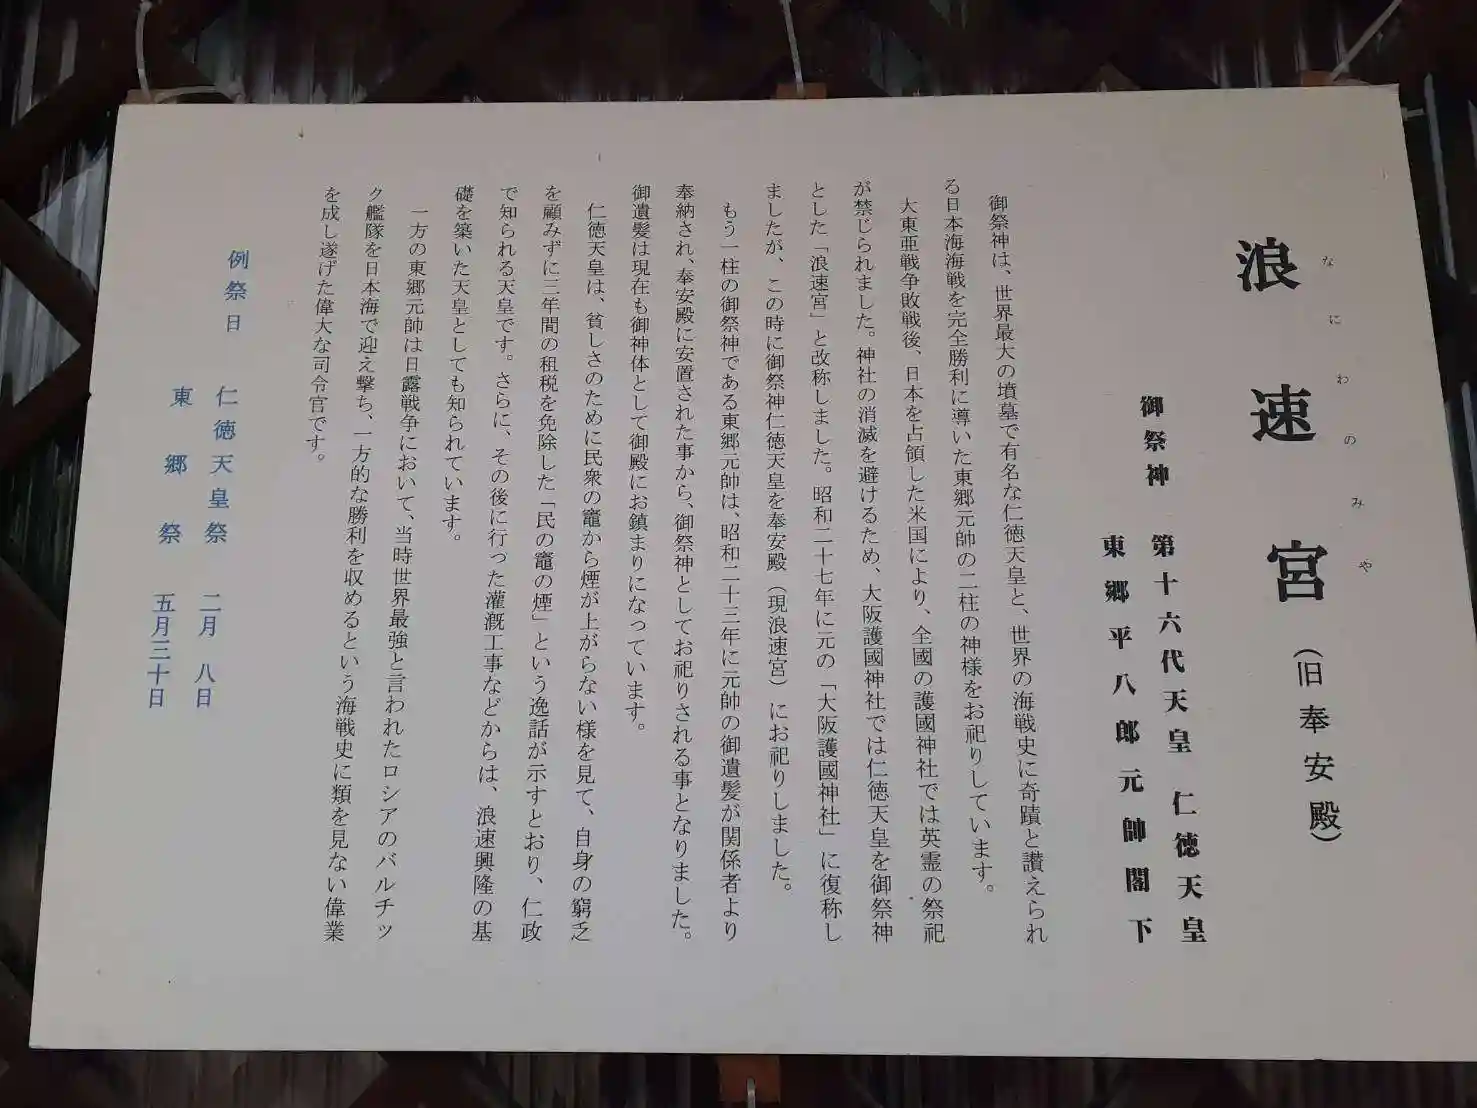 浪速宮（旧奉安殿）
なにわのみや
御祭神　第十六代天皇　仁徳天皇
東郷平八郎元帥閣下
御祭神は、世界最大の墳墓で有名な仁徳天皇と、世界の海戦史に奇蹟と讃えられ
る日本海海戦を完全勝利に導いた東郷元帥の二柱の神様をお祀りしています。
大東亜戦争敗戦後、日本を占領した米国により、全國の護國神社では英霊の祭祀
が禁じられました。神社の消滅を避けるため、大阪護國神社では仁徳天皇を御祭神
とした「浪速宮」と改称しました。昭和二十七年に元の「大阪護國神社」に復称し
ましたが、この時に御祭神仁徳天皇を奉安殿（現浪速宮）にお祀りしました。
もう一柱の御祭神である東郷元帥は、昭和二十三年に元帥の御遺髪が関係者より
奉納され、奉安殿に安置された事から、御祭神としてお祀りされる事となりました。
御遺髪は現在も御神体として御殿にお鎮まりになっています。
仁徳天皇は、貧しさのために民衆の竈から煙が上がらない様を見て、自身の窮乏
を顧みずに三年間の租税を免除した「民の竈の煙」という逸話が示すとおり、仁政
で知られる天皇です。さらに、その後に行った灌漑工事などからは、浪速興隆の基
礎を築いた天皇としても知られています。
一方の東郷元帥は日露戦争において、当時世界最強と言われたロシアのバルチッ
ク艦隊を日本海で迎え撃ち、一方的な勝利を収めるという海戦史に類を見ない偉業
を成し遂げた偉大な司令官です。
例祭日　仁徳天皇祭　二月　八日
東郷祭　五月三十日